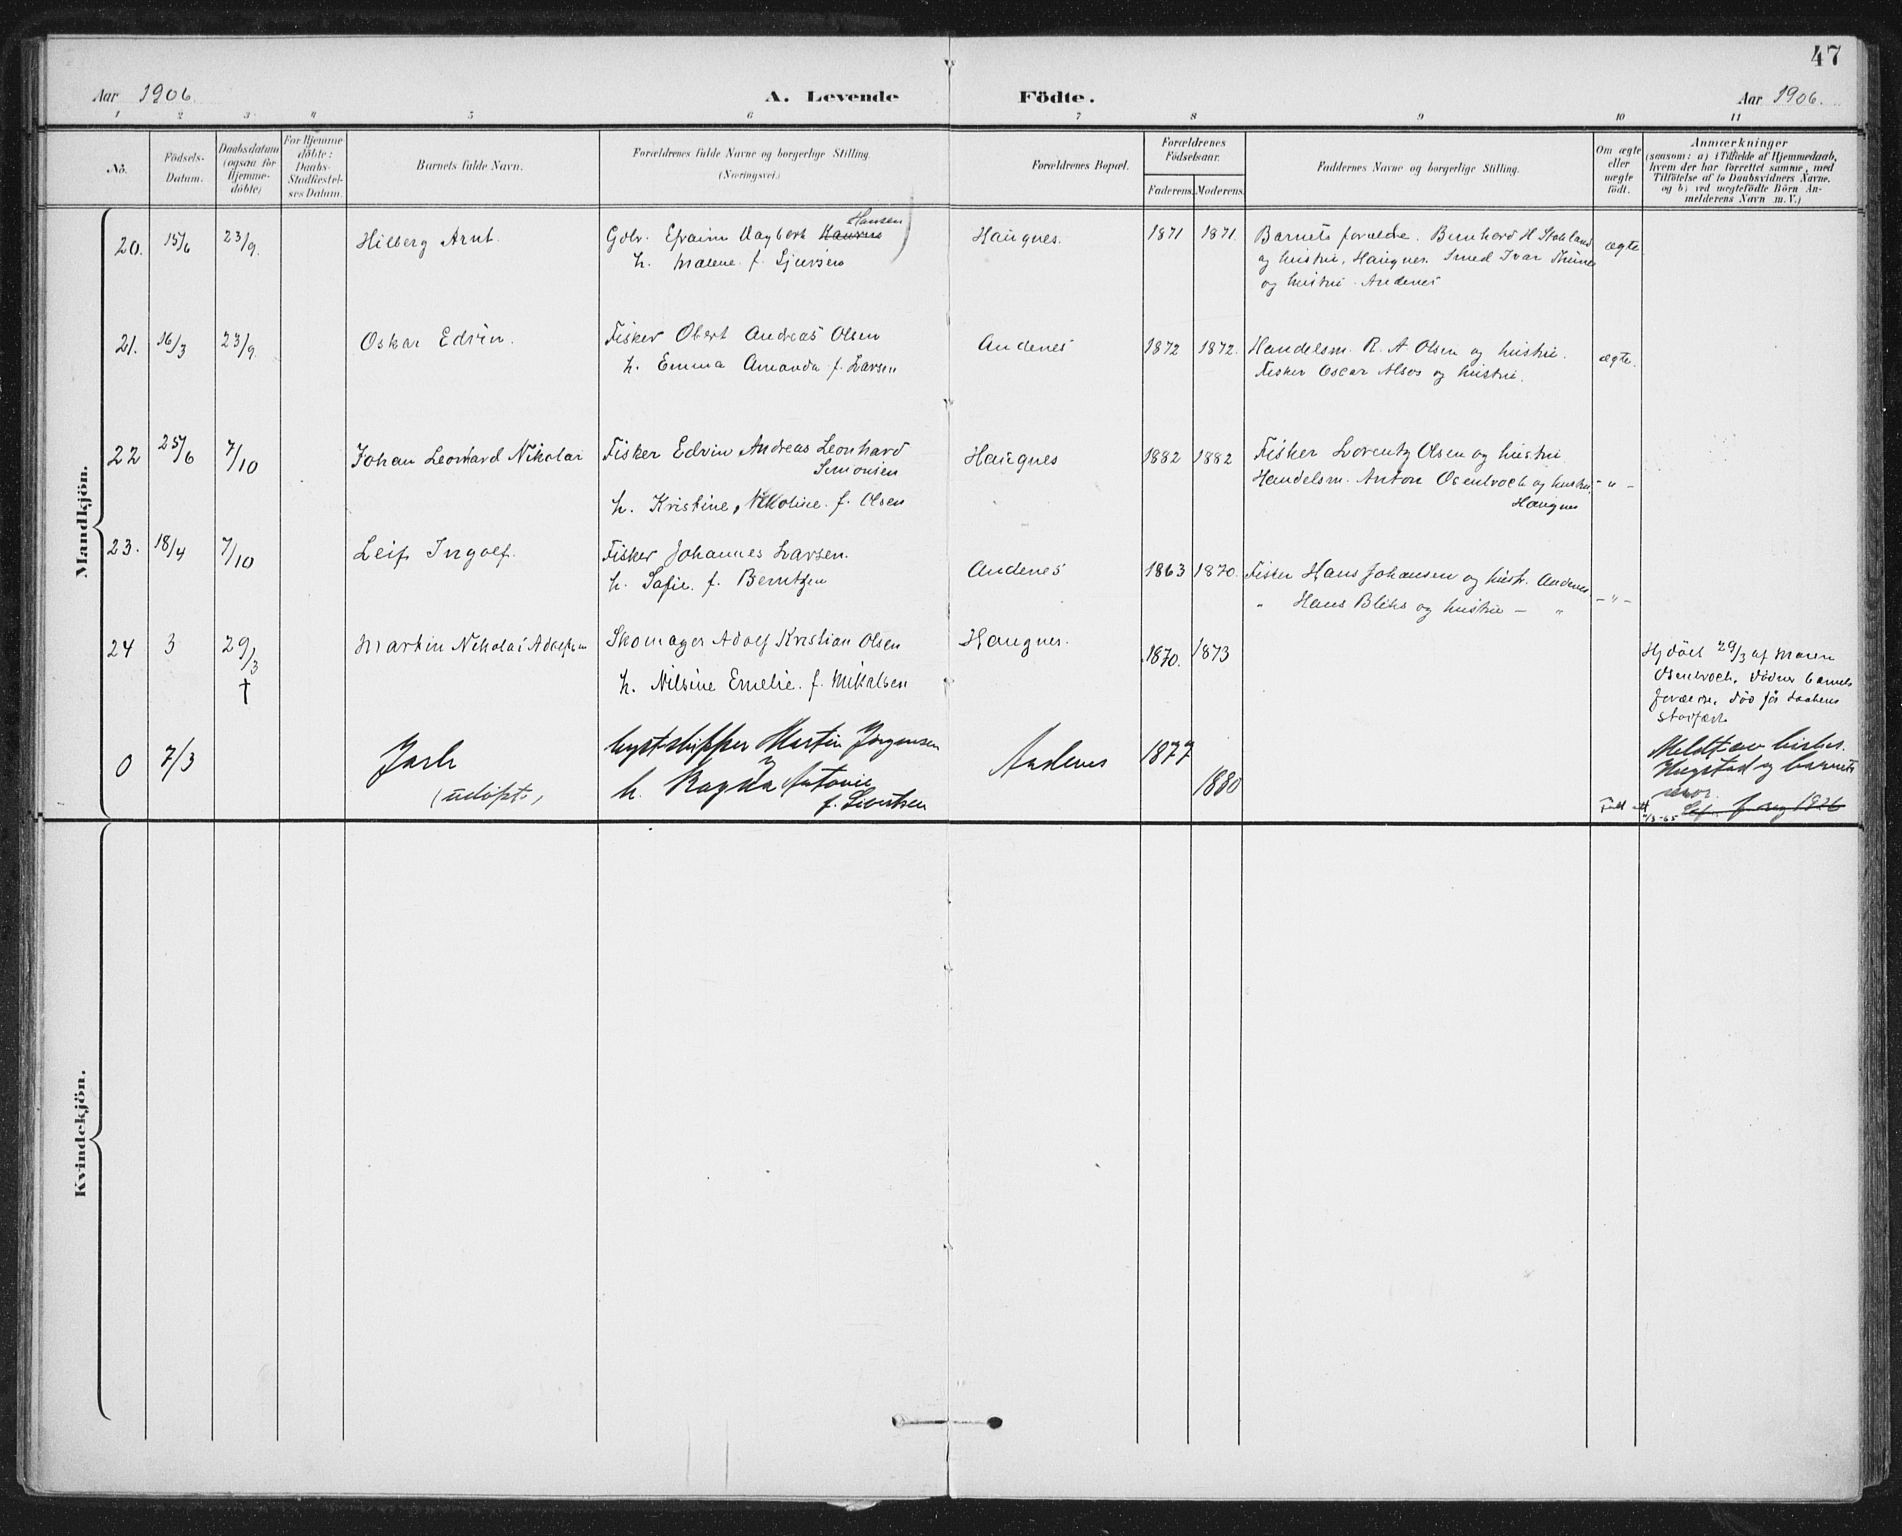 47
Aar 1906. A. Levende Födte. Aar 1906.
1 2 3 4 5 6 7 8 9 10 11
No. Födsels-Datum. Daabsdatum (ogsaa for Hjemme-döbte) For Hjemme döbte: Daabs-Stadfæstel-ses Datum. Barnets fulde Navn. Forældrenes fulde Navne og borgerlige Stilling. (Næringsvei.) Forældrenes Bopæl. Forældrenes Födselsaar. Faderens. Moderens. Faddernes Navne og borgerlige Stilling. Om ægte eller uægte födt. Anmærkninger
(saasom: a) i Tilfælde af Hjemmedaab,
hvem der har forrettet samme, med
Tilföielse af to Daabsvidners Navne.
og b) ved uægtefödte Börn An-
melderens Navn m. V.)
Mandkjön.
20. 15/6 23/9. Hilberg Arnt. Gdbr. Efraim Dagbert Hansen
h. Malene f. Sjursen
Haugnes. 1871 1871. Barnets forældre. Bernhard H
og hustru, Haugnes. Smed Ivar
og hustru. Andenes
ægte
21. 16/3 23/9. Oskar Edvin. Fisker Obert Andreas Olsen
h. Emma Amanda f. Larsen
Andenes 1872 1872. Handelsm. R. A Olsen og hustru.
Fisker Oscar Alsos og hustru.
ægte.
22 25/6 7/10 Johan Leonhard Nikolai Fisker Edvin Andreas Leonhard
Simonsen
h. Kristine Nikoline f. Olsen
Haugnes 1882 1882 Fisker Lorentz Olsen og hustru
Handelsm. Anton Osenbroch og hustru,
Haugnes
- " -
23. 18/4 7/10 Leif Ingolf. Fisker Johannes Larsen.
h. Sofie f. Berntzen
Andenes 1863 1870. Fisker Hans Johansen og hustr. Andenes.
" Hans Bliks og hustru - "
- " -
24 3 29/3 † Martin Nikolai Adolfsen Skomager Adolf Kristian Olsen
h. Nilsine Emelie. f. Mikalsen
Haugnes. 1870. 1873
Hjdöbt 29/3 af Maren
Osenbroch. Vidner barnets
forældre. Död för daabens
stadfæst
0 7/3 Jarle
(udöpt)
Martin Jörgensen
h. Ragna Antonie
f. Sivertsen
Andenes 1877 1880
Meldt av
Hugstad og barnets
mor.
Kvindekjön.